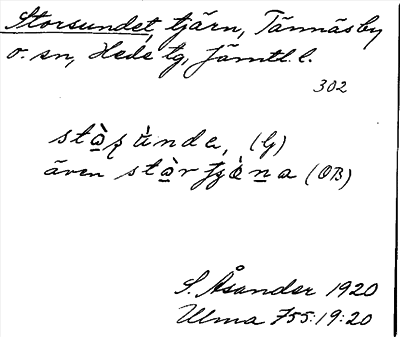 Storsundet, tjärn, Tännäsby
o. sn, Hede tg, Jämtl. l.
302
stò̲ʂùnda, (G)
även stò̲rʃjæ̀n̲a (OB)
S. Åsander 1920
Ulma 755:19:20